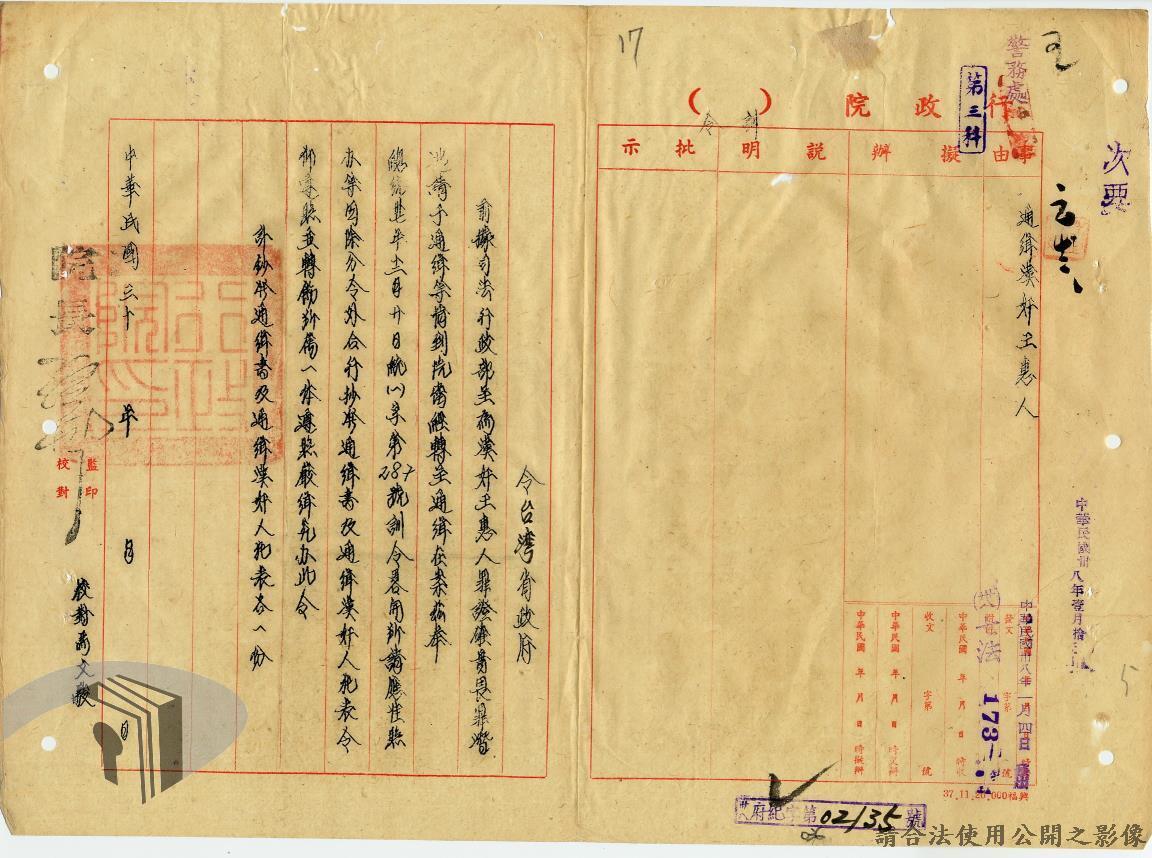 次要
警務處
第三科
行政院（訓令）
事由
擬辦
說明
批示
通緝漢奸王惠人
中華民國卅八年壹月拾三
中華民國卅八年一月四日
發文 字第 號
法
中華民國 年 月 日 時收
收文 字第 號
中華民國 年 月 日 時交辦
中華民國 年 月 日 時擬辦
37.11.20.000福興
府紀字第02135號
17
5
令台灣省政府
前據司法行政部呈為漢奸王惠人罪證確實畏罪潛
逃請予通緝等情到院當經轉呈通緝在案茲奉
總統卅七年十二月廿日統(一)字第287號訓令畧開所請應准照
办等因除分令外合行抄發通緝書及通緝漢奸人犯表令
仰遵照並轉飭所屬一体遵照嚴緝究办此令
計鈔發通緝書及通緝漢奸人犯表各一份
院長
中華民國三十 年 月 日
監印
校對
請合法使用公開之影像